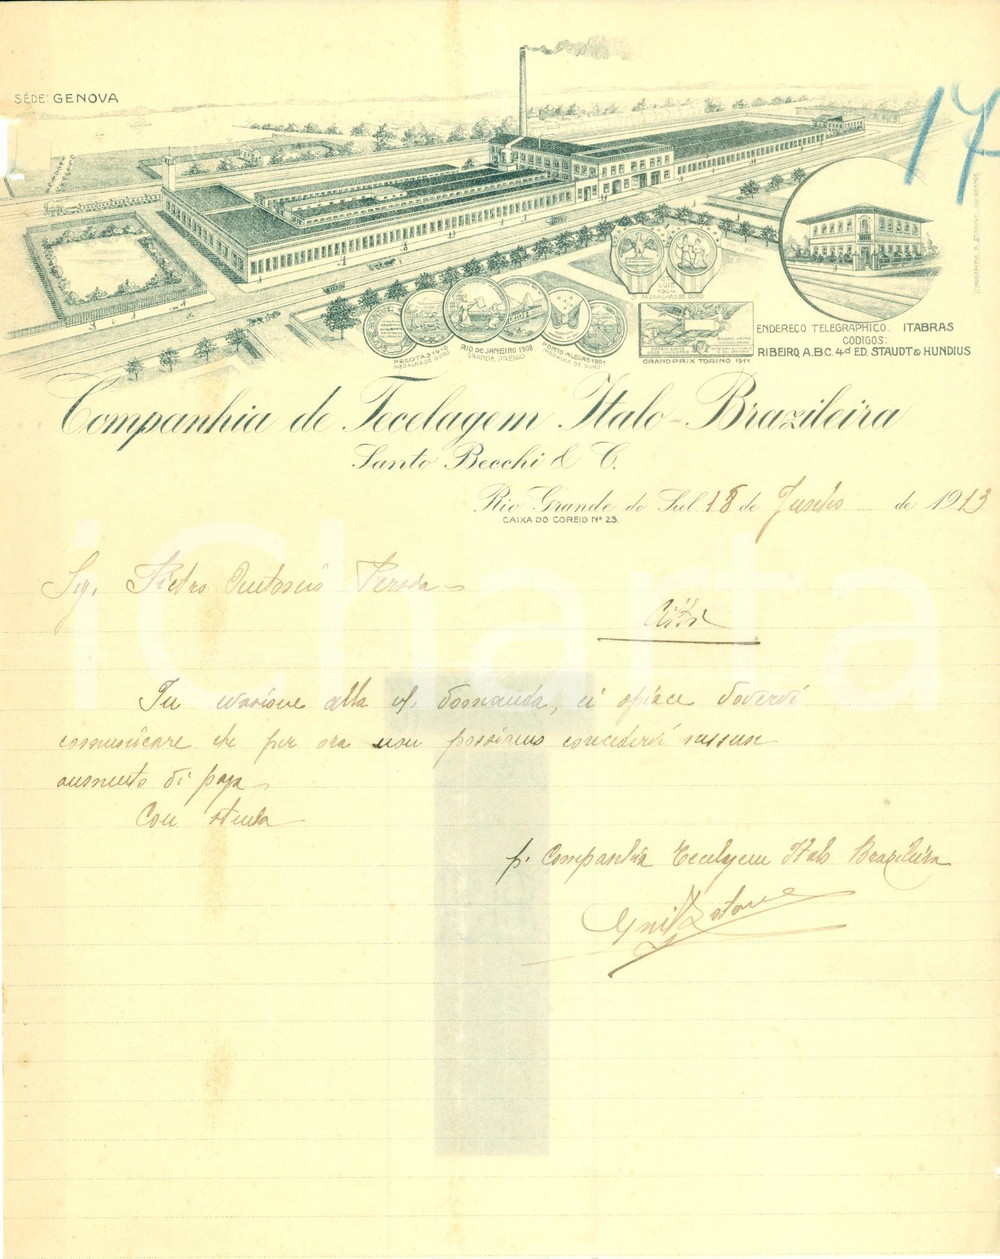 SÉDE: GENOVA
17
ST. LUIZ 1904
3 MEDALHAS DE OURO
PELOTAS 1910
MEDALHA DE OURO
RIO DE JANEIRO 1908
GRANDE PREMIO
PORTO ALEGRE 1901
MEDALHA DE OURO
GRAN PRIX TORINO 1911
ENDEREÇO TELEGRAPHICO: ITABRAS
CODIGOS:
RIBEIRO, A.B.C. 4ª ED. STAUDT & HUNDIUS
Companhia de Tecelagem Italo-Brazileira
Santo Becchi & C.
Rio Grande do Sul, 18 de Junho de 1913
CAIXA DO COREIO Nº 23.
Sig. Pietro Antonio
Città
In evasione alla V/ domanda, ci spiace dovervi
comunicare che per ora non possiamo concedervi nessun
aumento di paga
Con stima
p. Companhia Tecelagem Italo Brazileira
iCharta